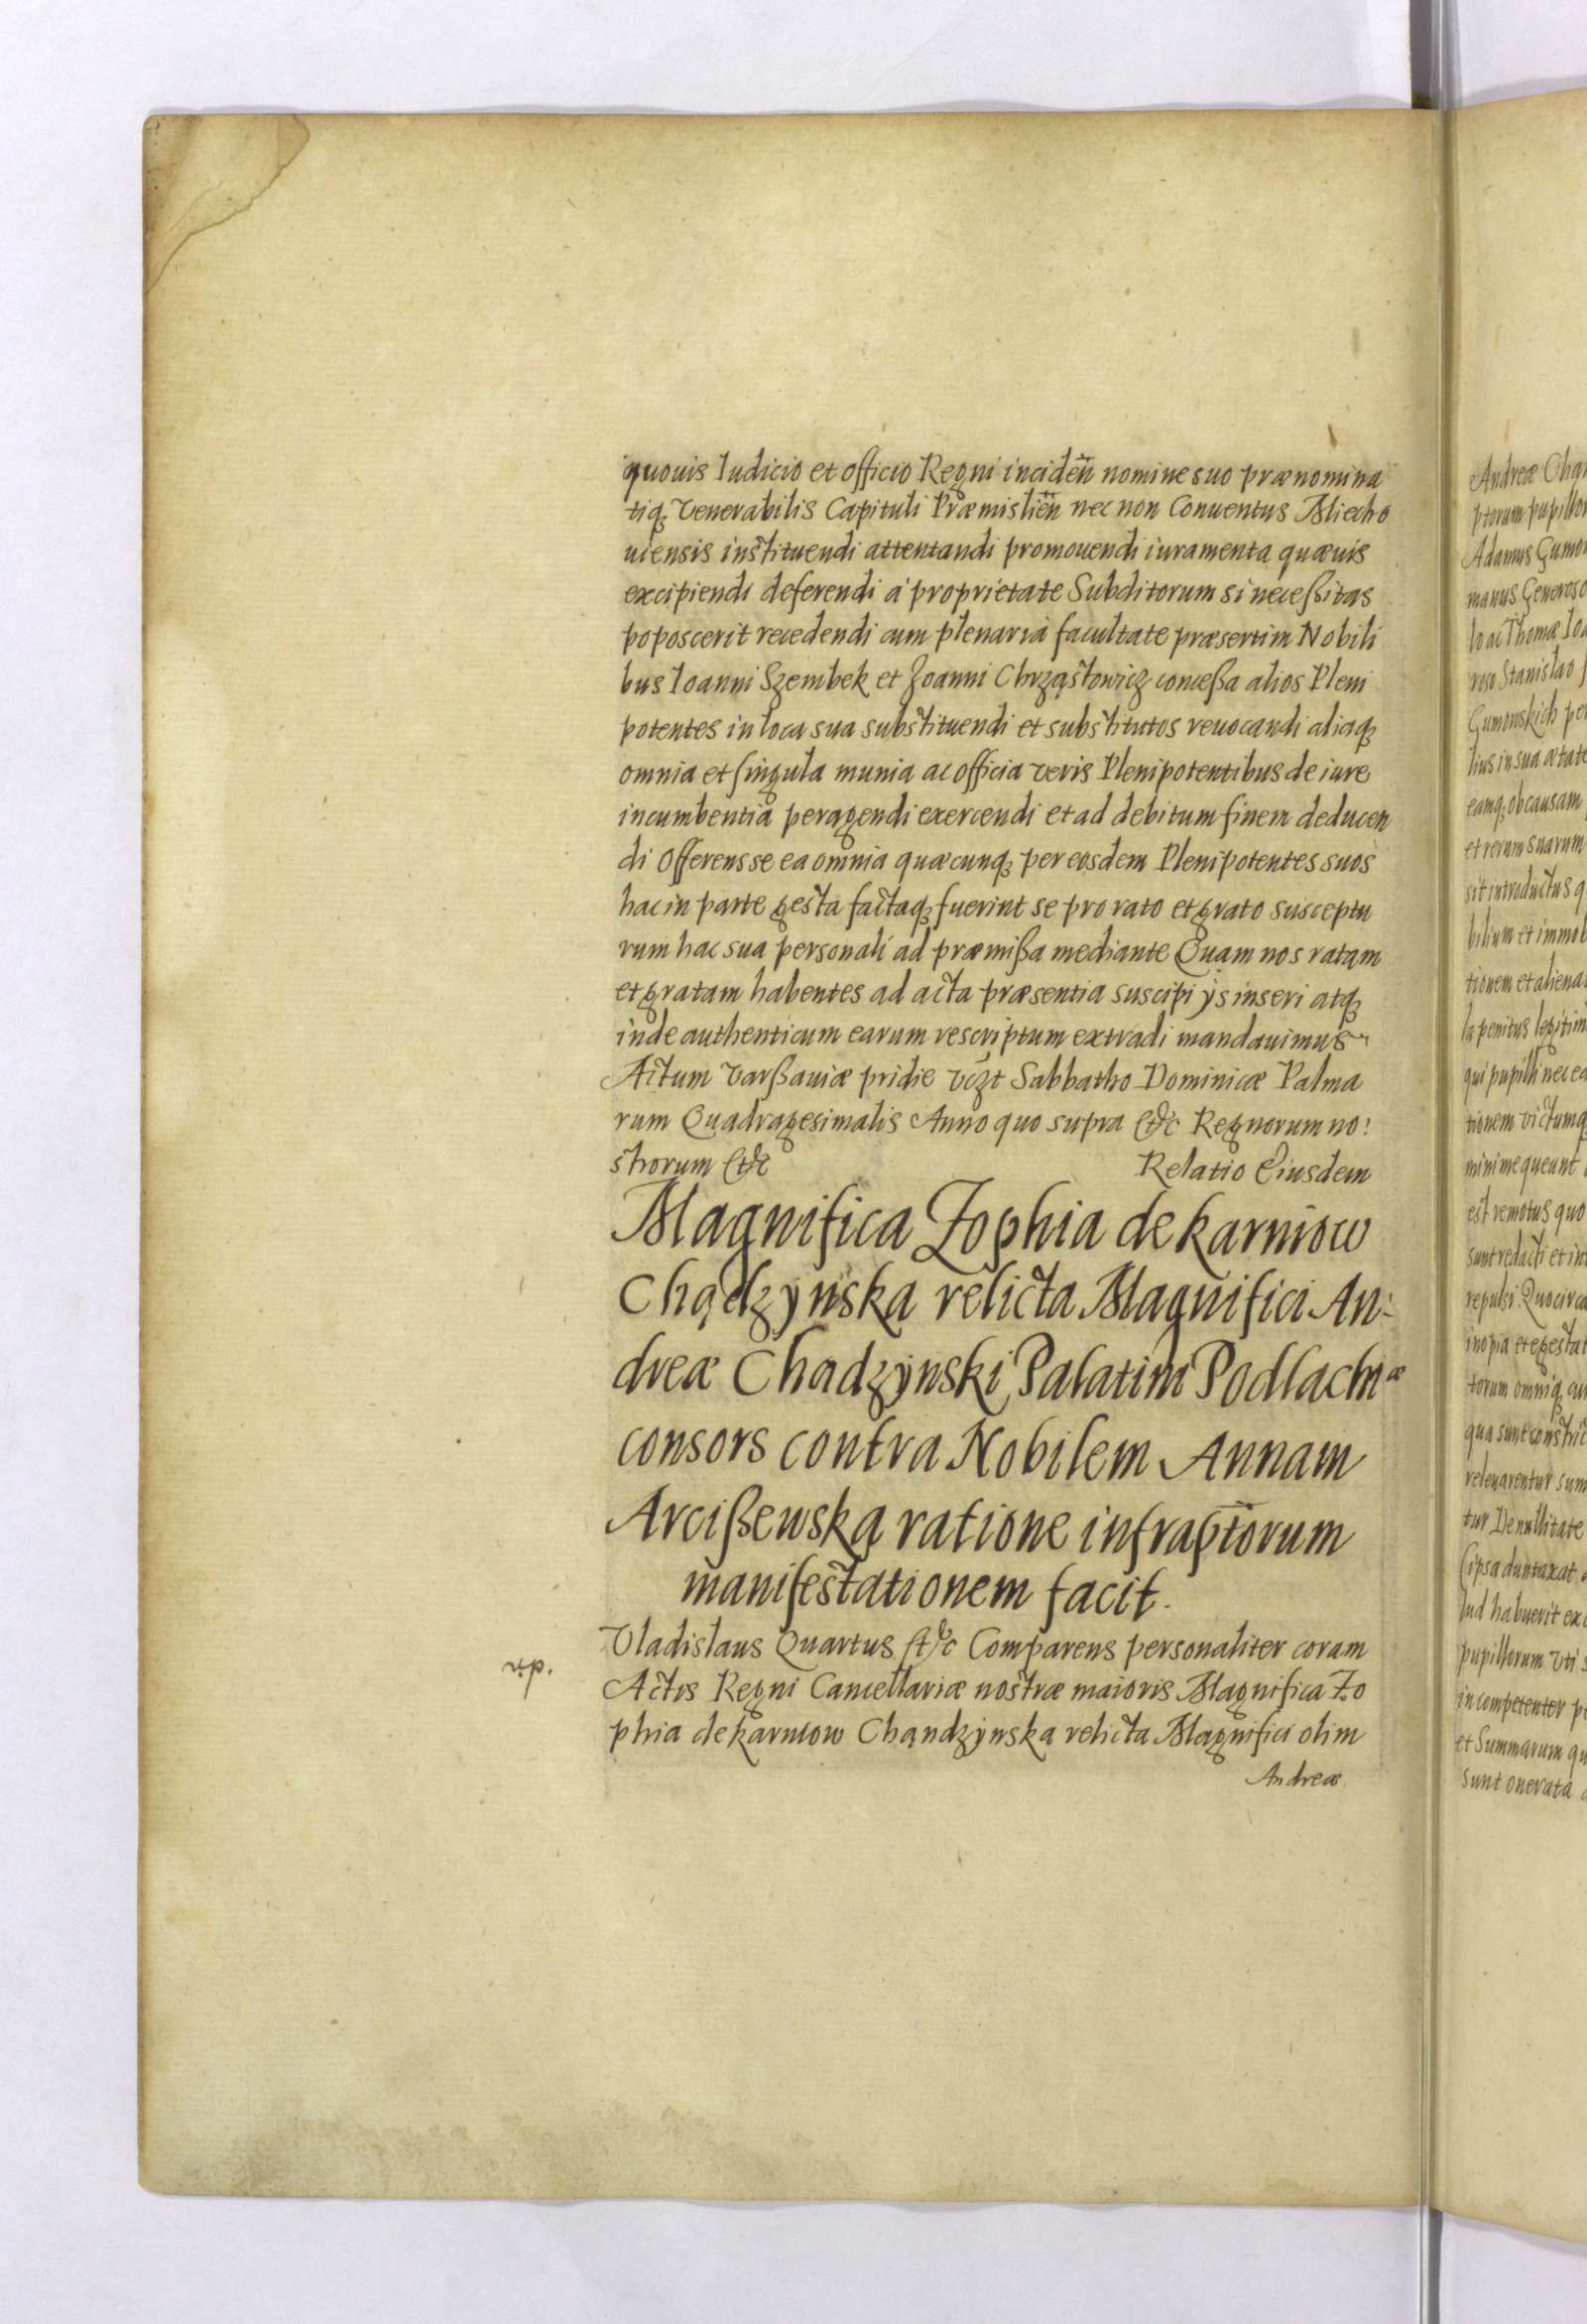 quouis Iudicio et officio Regni inciden̄ nomine suo prænomina
tiq; Venerabilis Capituli Præmislien̄ nec non Conuentus Miecho
uiensis instituendi attentandi promouendi iuramenta quæuis
excipiendi deferendi à proprietate Subditorum si neceßitas
poposcerit recedendi cum plenaria facultate præsertim Nobili
bus Ioanni Szembek et Joanni Chrząstowicz conceßa alios Pleni
potentes in loca sua substituendi et substitutos reuocandi aliaq;
omnia et singula munia ac officia veris Plenipotentibus de iure
incumbentia peragendi exercendi et ad debitum finem deducen
di Offerens se ea omnia quæcunq; per eosdem Plenipotentes suos
hac in parte gesta factaq; fuerint se pro rato et grato susceptu
rum hac sua personali ad præmißa mediante Quam nos ratam
et gratam habentes ad acta præsentia suscipi ijs inseri atq;
inde authenticum earum rescriptum extradi mandauimus
Actum Varßauiæ pridie včzt Sabbatho Dominicæ Palma
rum Quadragesimalis Anno quo supra &c Regnorum no:
strorum &c Relatio Eiusdem
Magnifica Zophia de karniow
Chądzynska relicta Magnifici An:
dreæ Chadzynski Palatini Podlachiæ
consors contra Nobilem Annam
Arcißewską ratione infrap̄torum
manifestationem facit.
Vladislaus Quartus &c Comparens personaliter coram
Actis Regni Cancellariæ nostræ maioris Magnifica Zo
phia de karniow Chandzynska relicta Magnifici olim
Andreæ
Andreæ
ptorum pupillor
Adamus Gumo
manus Generoso
lo ac Thomæ
roso Stanislao
Gumowskich
lius in sua ætate
eamq; ob causam
et rerum suarum
sit introductus
bilium et immob
tionem et aliena
la penitus
qui pupilli nec
tionem victumq
minime queunt
est remotus quo
sunt redacti et
repulsi Quocirca
inopia et egesta
torum omniq;
qua sunt
releuarentur
tur De nullitate
ipsa duntaxat
lud habuerit
pupillorum vti
incompetenter
et Summarum
sunt onerata